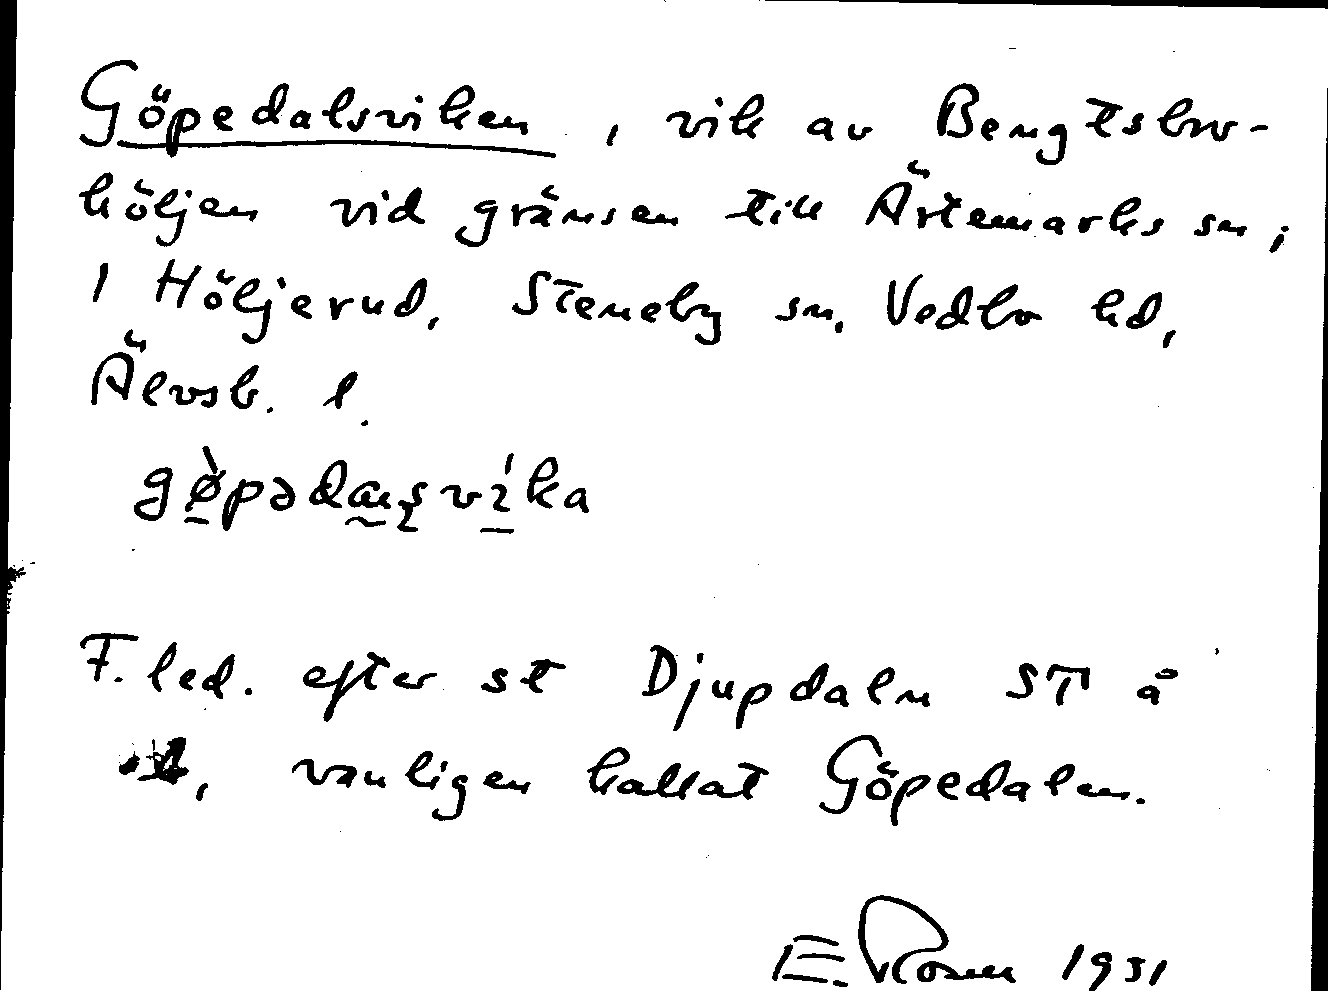 Göpedalsviken, vik av Bengtsbro-
höljen vid gränsen till Ärtemarks sn,
1 Höljerud, Steneby sn, Vedbo hd,
Älvsb. l.
F. led. efter st Djupdaln ST å
vanligen kallat Göpedalen.
E. Rosen 1931